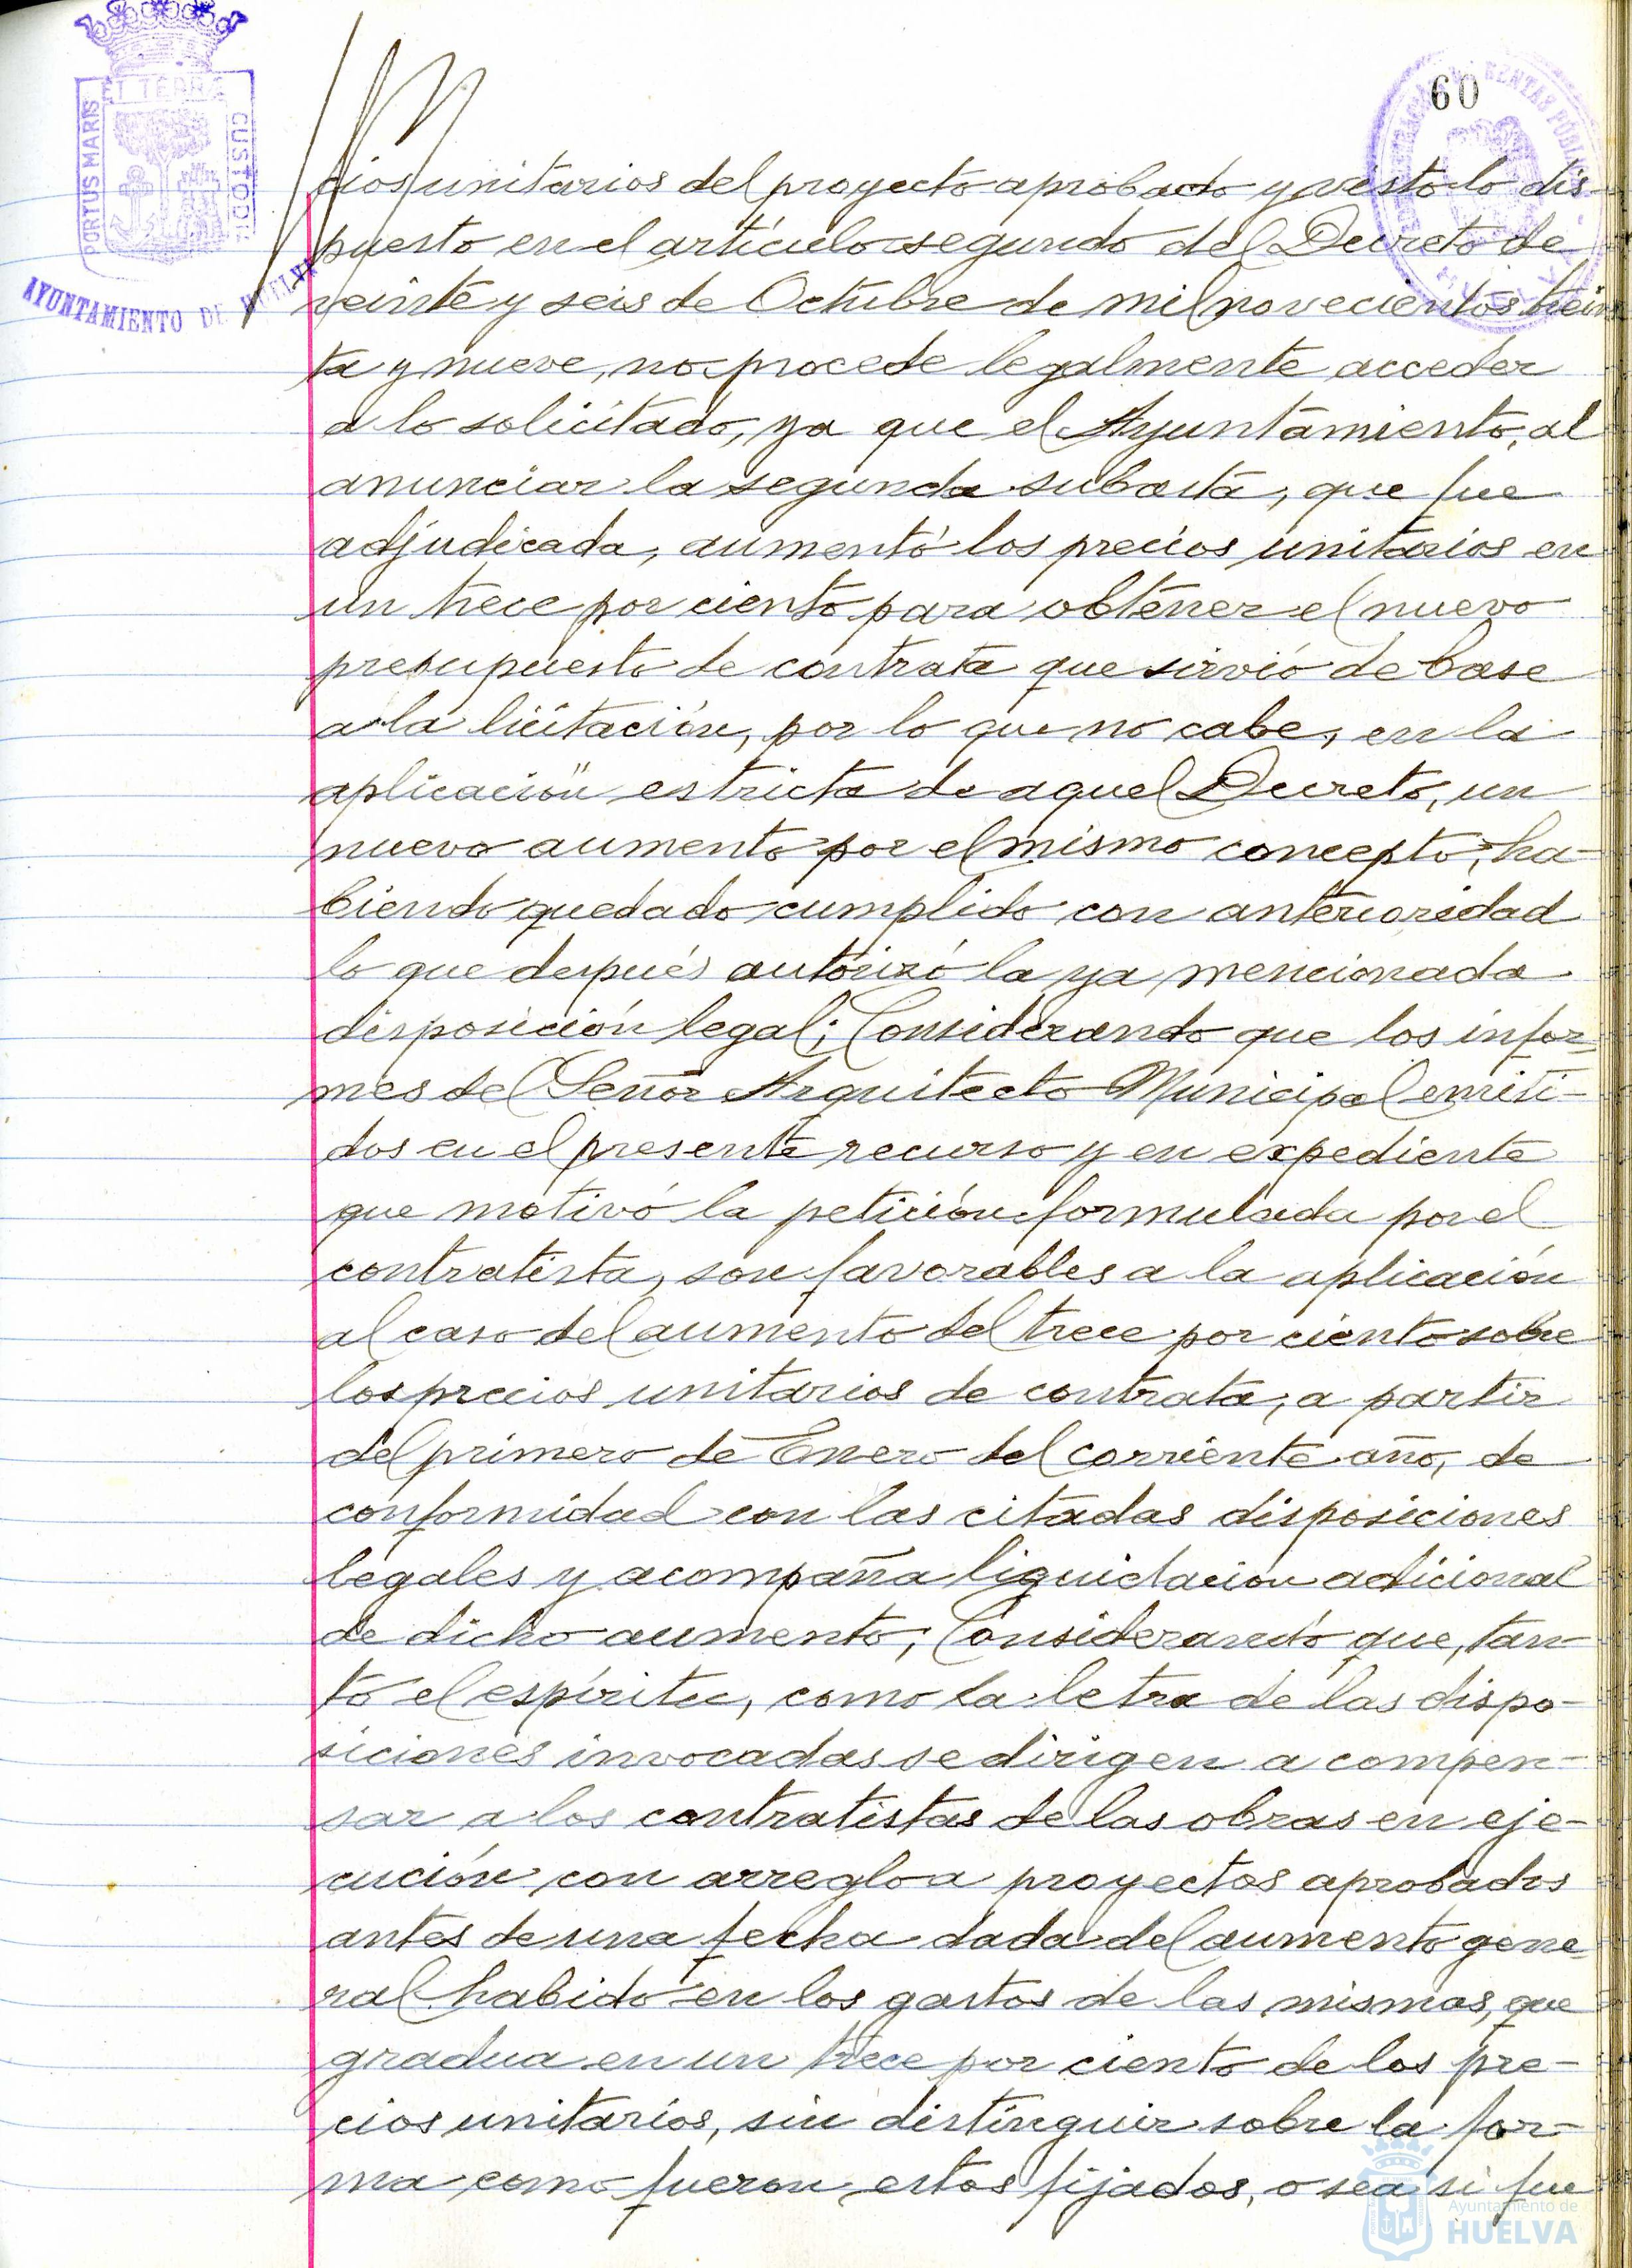 60
PORTUS MARIS
ET TERRÆ
CUSTODIA
AYUNTAMIENTO DE HUELVA
cios unitarios del proyecto aprobado y visto lo dis-
puesto en el artículo segundo del Decreto de
veinte y seis de Octubre de mil novecientos trein
ta y nueve, no procede legalmente acceder
a lo solicitado, ya que el Ayuntamiento, al
anunciar la segunda subasta, que fue
adjudicada, aumentó los precios unitarios en
un trece por ciento para obtener el nuevo
presupuesto de contrata que sirvió de base
a la licitación, por lo que no cabe, en la
aplicación estricta de aquel Decreto, un
nuevo aumento por el mismo concepto, ha-
biendo quedado cumplido con anterioridad
lo que después autorizó la ya mencionada
disposición legal; Considerando que los infor-
mes del Señor Arquitecto Municipal emiti-
dos en el presente recurso y en expediente
que motivó la petición formulada por el
contratista, son favorables a la aplicación
al caso del aumento del trece por ciento sobre
los precios unitarios de contrata, a partir
del primero de Enero del corriente año, de
conformidad con las citadas disposiciones
legales y acompaña liquidación adicional
de dicho aumento; Considerando que, tan-
to el espíritu, como la letra de las dispo-
siciones invocadas se dirigen a compen-
sar a los contratistas de las obras en eje-
cución con arreglo a proyectos aprobados
antes de una fecha dada del aumento gene-
ral habido en los gastos de las mismas, que
gradua en un trece por ciento de los pre-
cios unitarios, sin distinguir sobre la for-
ma como fueron estos fijados, o sea si fue
Ayuntamiento de
HUELVA